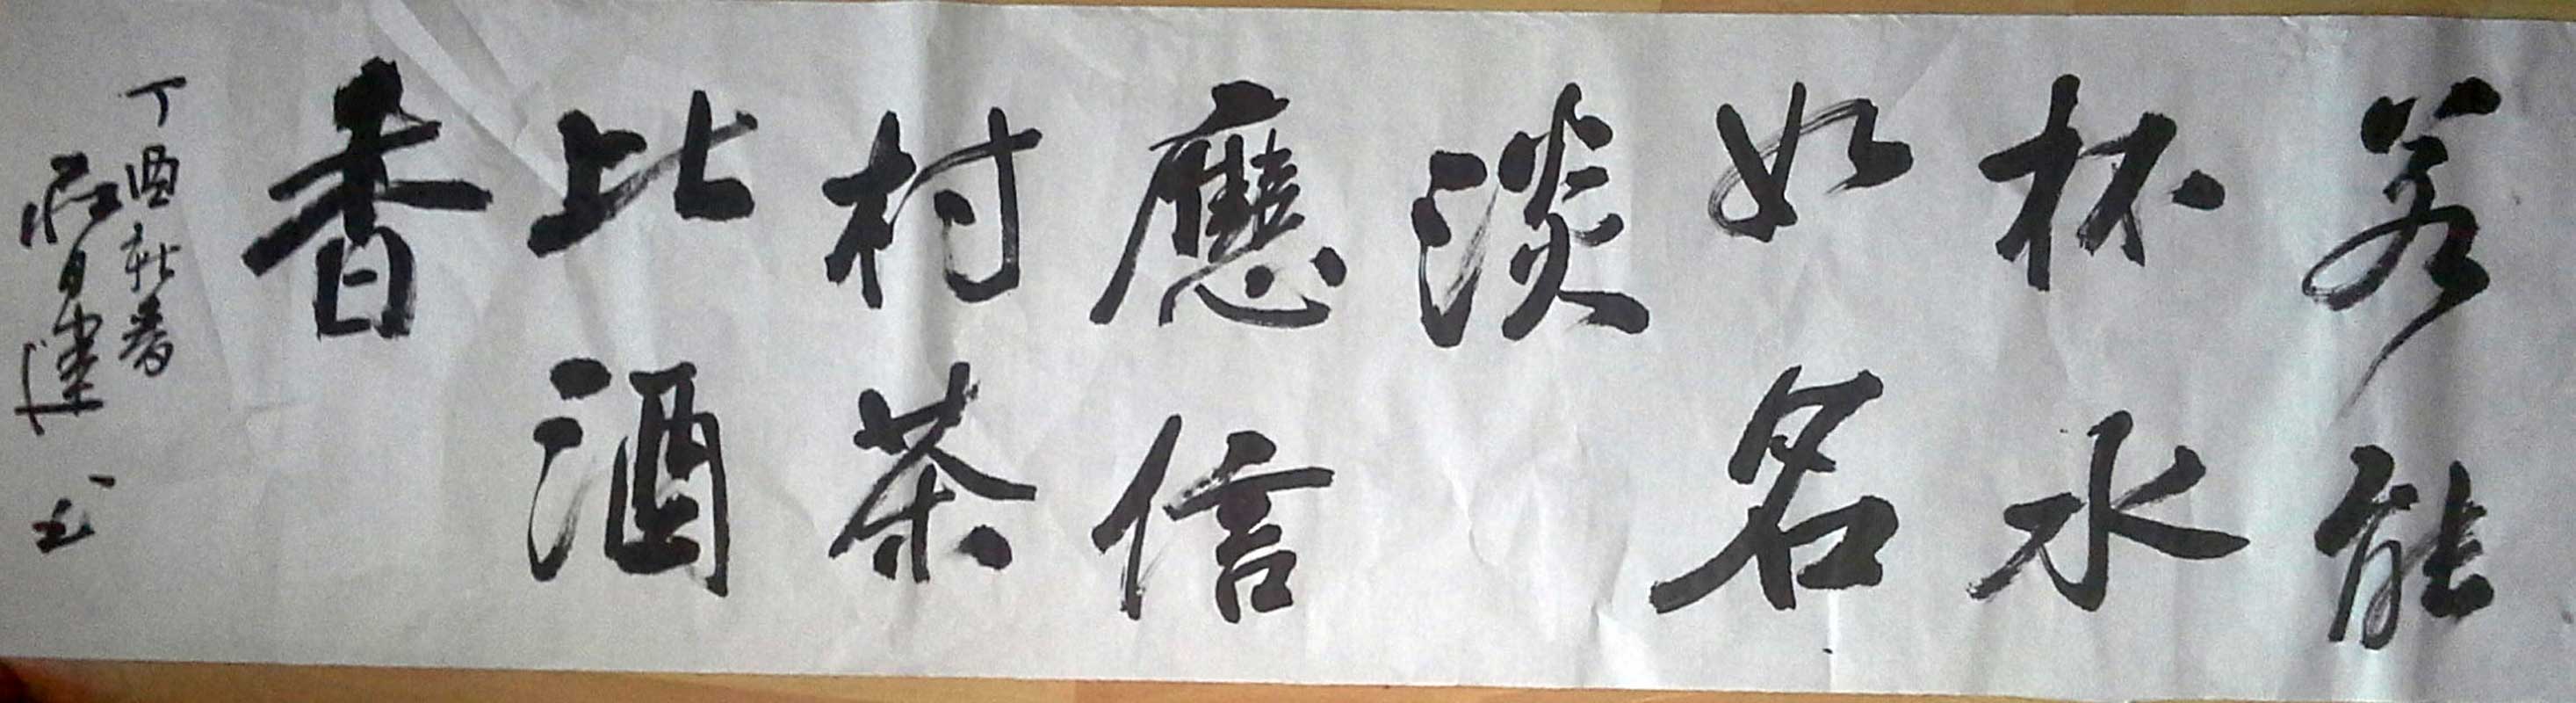 若能
杯水
如名
淡
應信
村茶
比酒
香
丁酉秋月
书